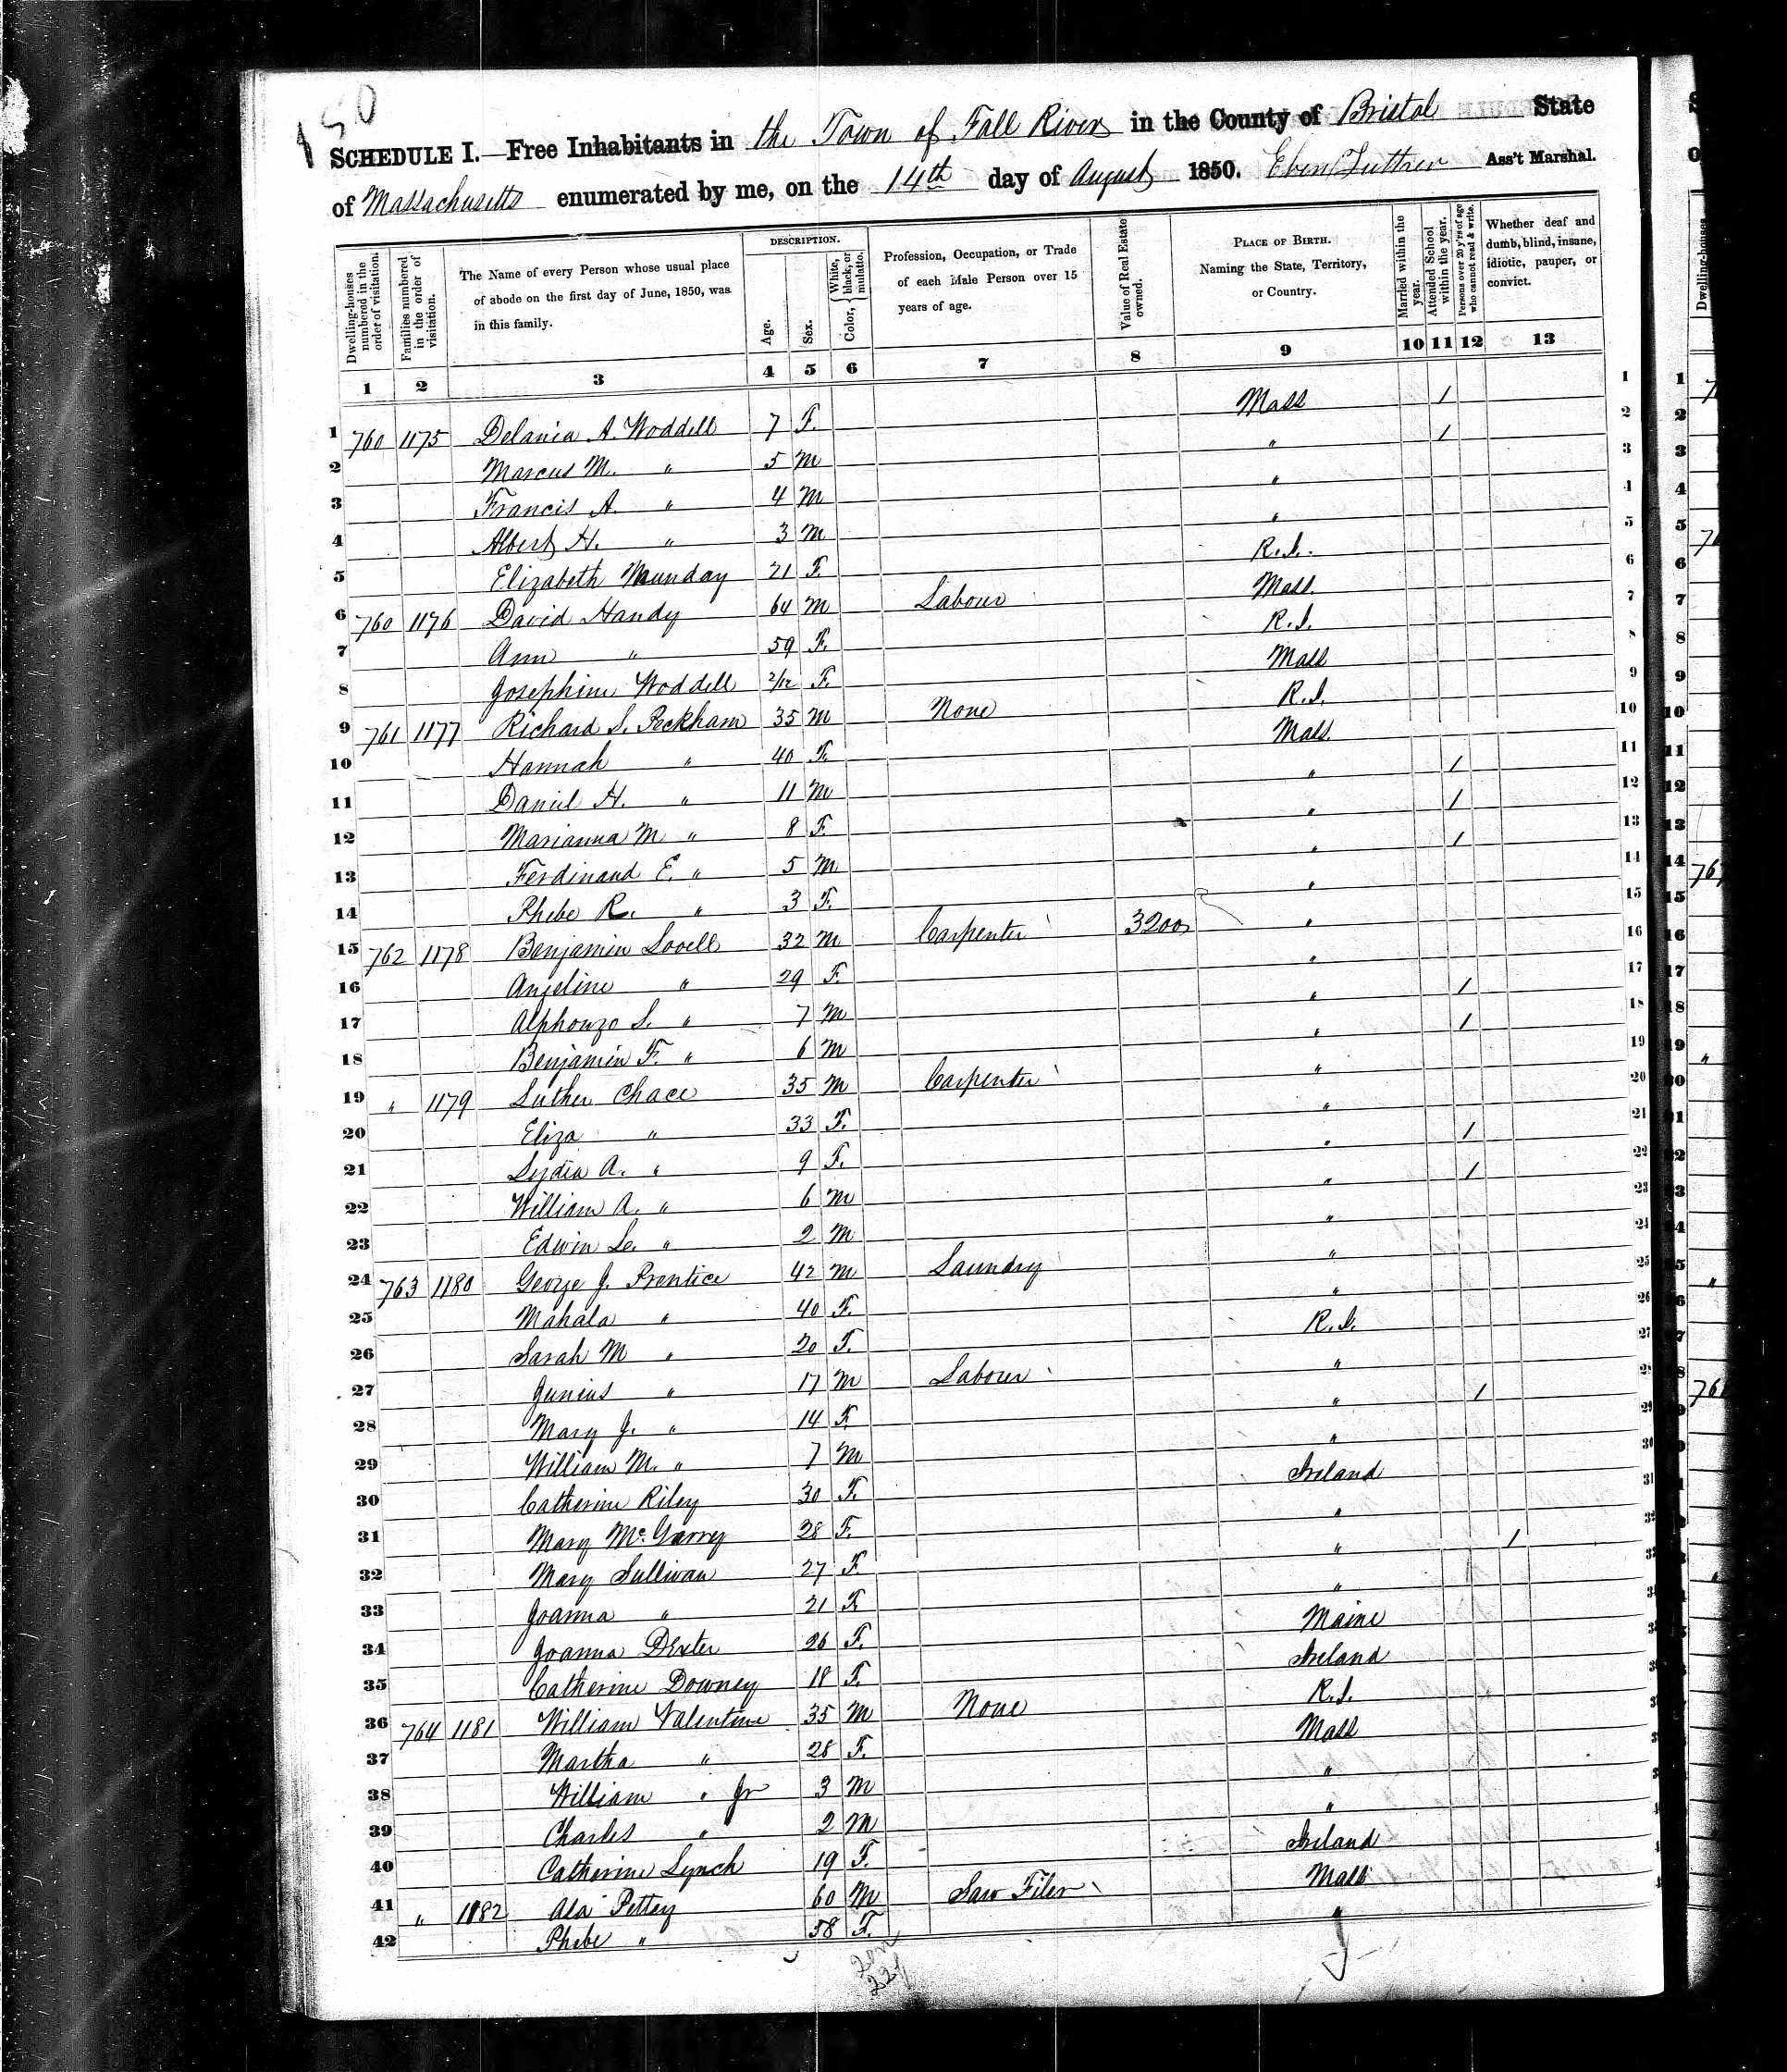 150
SCHEDULE I. Free Inhabitants in the Town of Fall River in the County of Bristol State
of Massachusetts enumerated by me, on the 14th day of August 1850. Eben Luther Ass't Marshal.
Dwelling-houses numbered in the order of visitation.
Families numbered in the order of visitation.
The Name of every Person whose usual place of abode on the first day of June, 1850, was in this family.
DESCRIPTION.
Age.
Sex.
Color, { White, black, or mulatto.
Profession, Occupation, or Trade of each Male Person over 15 years of age.
Value of Real Estate owned.
PLACE OF BIRTH. Naming the State, Territory, or Country.
Married within the year.
Attended School within the year.
Persons over 20 y'rs of age who cannot read & write.
Whether deaf and dumb, blind, insane, idiotic, pauper, or convict.
1 2 3 4 5 6 7 8 9 10 11 12 13
1 760 1175 Delania A. Woddell 7 F. Mass 1 1
2 Marcus M. " 5 M " 1 2
3 Francis A. " 4 M " 3
4 Albert H. " 3 M " 4
5 Elizabeth Munday 21 F. R.I. 5
6 760 1176 David Handy 64 M Labour Mass. 6
7 Ann " 59 F. R.I. 7
8 Josephine Woddell 2/12 F. Mass 8
9 761 1177 Richard S. Peckham 35 M None R.I. 9
10 Hannah " 40 F. Mass. 10
11 Daniel H. " 11 M " 1 11
12 Marianna M. " 8 F. " 1 12
13 Ferdinand E. " 5 M " 1 13
14 Phebe R. " 3 F. " 14
15 762 1178 Benjamin Lovell 32 M Carpenter 3200 " 15
16 Angeline " 29 F. " 16
17 Alphonzo S. " 7 M " 1 17
18 Benjamin F. " 6 M " 1 18
19 " 1179 Luther Chace 35 M Carpenter " 19
20 Eliza " 33 F. " 20
21 Lydia A. " 9 F. " 1 21
22 William A. " 6 M " 1 22
23 Edwin Le. " 2 M " 23
24 763 1180 George J. Prentice 42 M Laundry " 24
25 Mahala " 40 F. " 25
26 Sarah M " 20 F. R.I. 26
27 Junius " 17 M Labour " 27
28 Mary J. " 14 F. " 1 28
29 William M. " 7 M " 29
30 Catherine Riley 30 F. Ireland 30
31 Mary McGarrey 28 F. " 31
32 Mary Sullivan 27 F. " 1
33 Joanna " 21 F. "
34 Joanna Dexter 26 F. Maine
35 Catherine Downey 18 F. Ireland
36 764 1181 William Valentine 35 M None R.I.
37 Martha " 28 F. Mass
38 William " Jr 3 M "
39 Charles " 2 M "
40 Catherine Lynch 19 F. Ireland
41 " 1182 Asa Pettey 60 M Saw Filer Mass
42 Phebe " 58 F. "